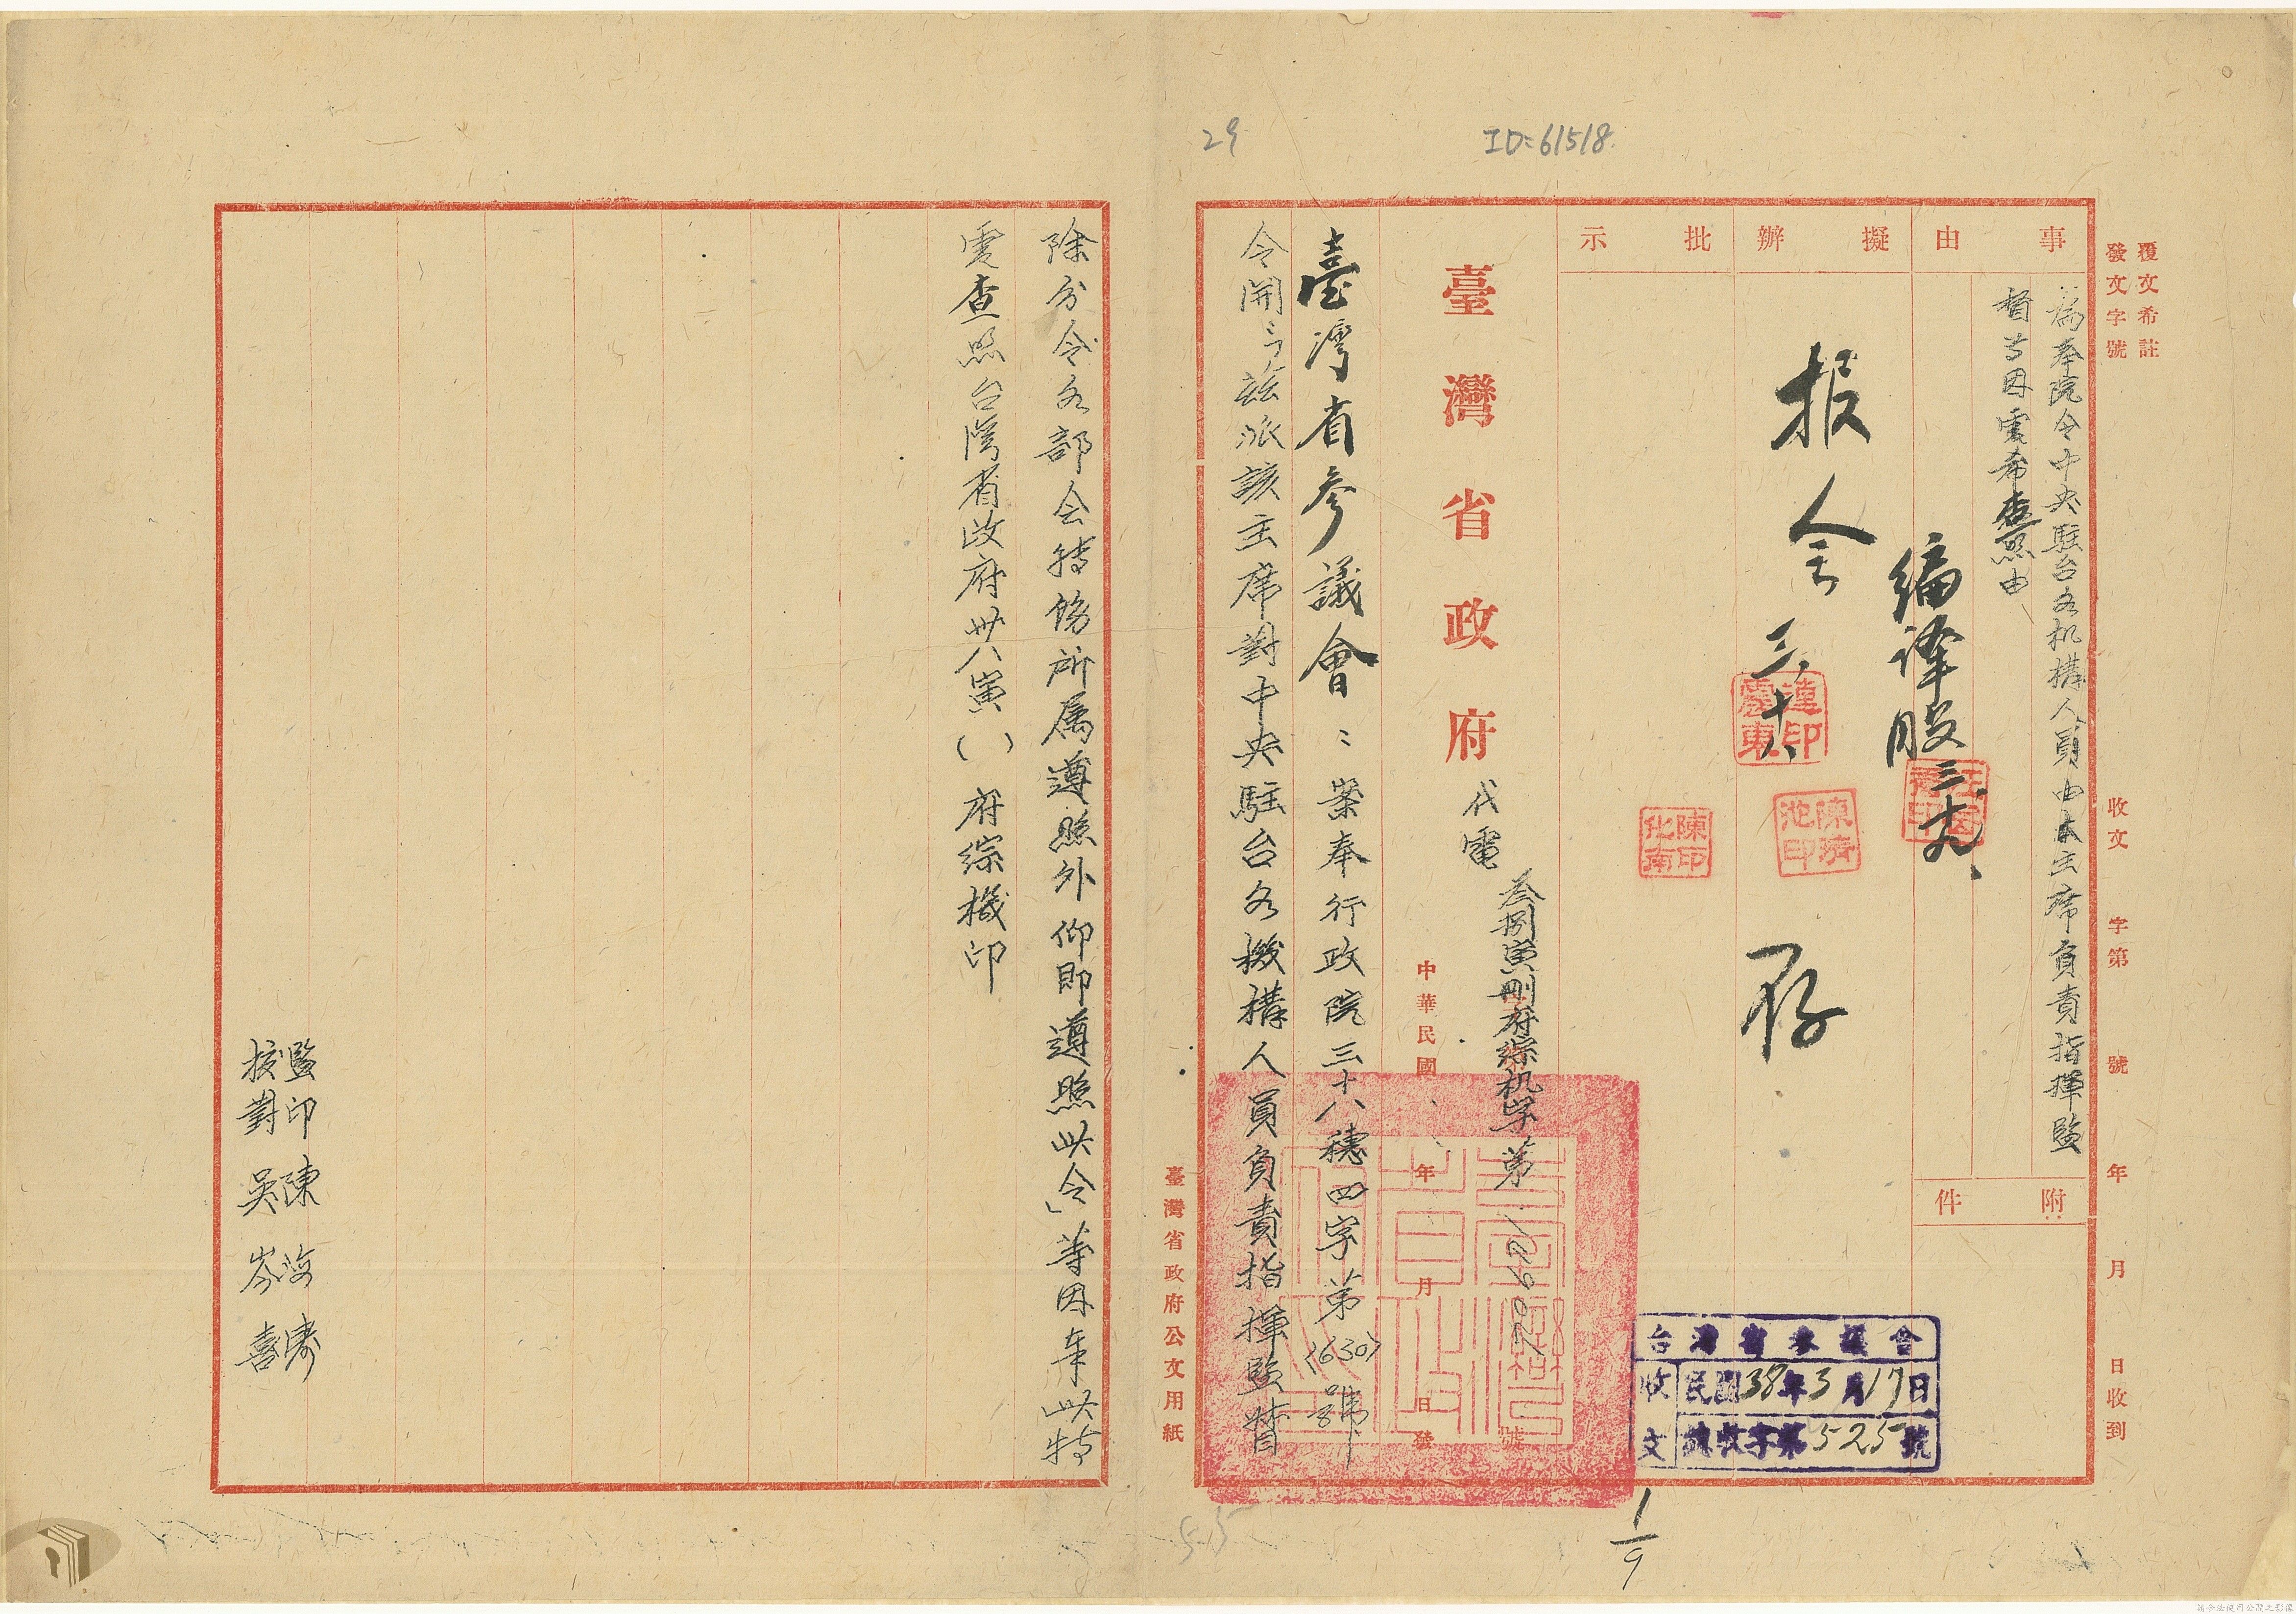 29
ID=61518.
覆文希註
發文字號
收文 字第 號 年 月 日收到
事由
為奉院令中央駐台各机構人員由本主席負責指揮監
督等因電希查照由
附件
擬辦
編譯股
三.十九、
報 会
三.十八
存
批示
連印震東
陳清池印
陳印化南
臺灣省政府代電
叁捌寅 府綜机字第 號
中華民國 年 月 日發
臺灣省參議會:案奉行政院三十八穗四字第(1630)號
令開:「茲派該主席對中央駐台各機構人員負責指揮監督
除分令各部会轉飭所屬遵照外仰即遵照此令」等因奉此特
電查照台灣省政府卅八寅( )府綜機印
監印陳海濤
校對吳岑喜
臺灣省政府公文用紙
台灣省參議會
收文
民國38年3月17日
議收字第525號
1/9
55
請合法使用公開之影像